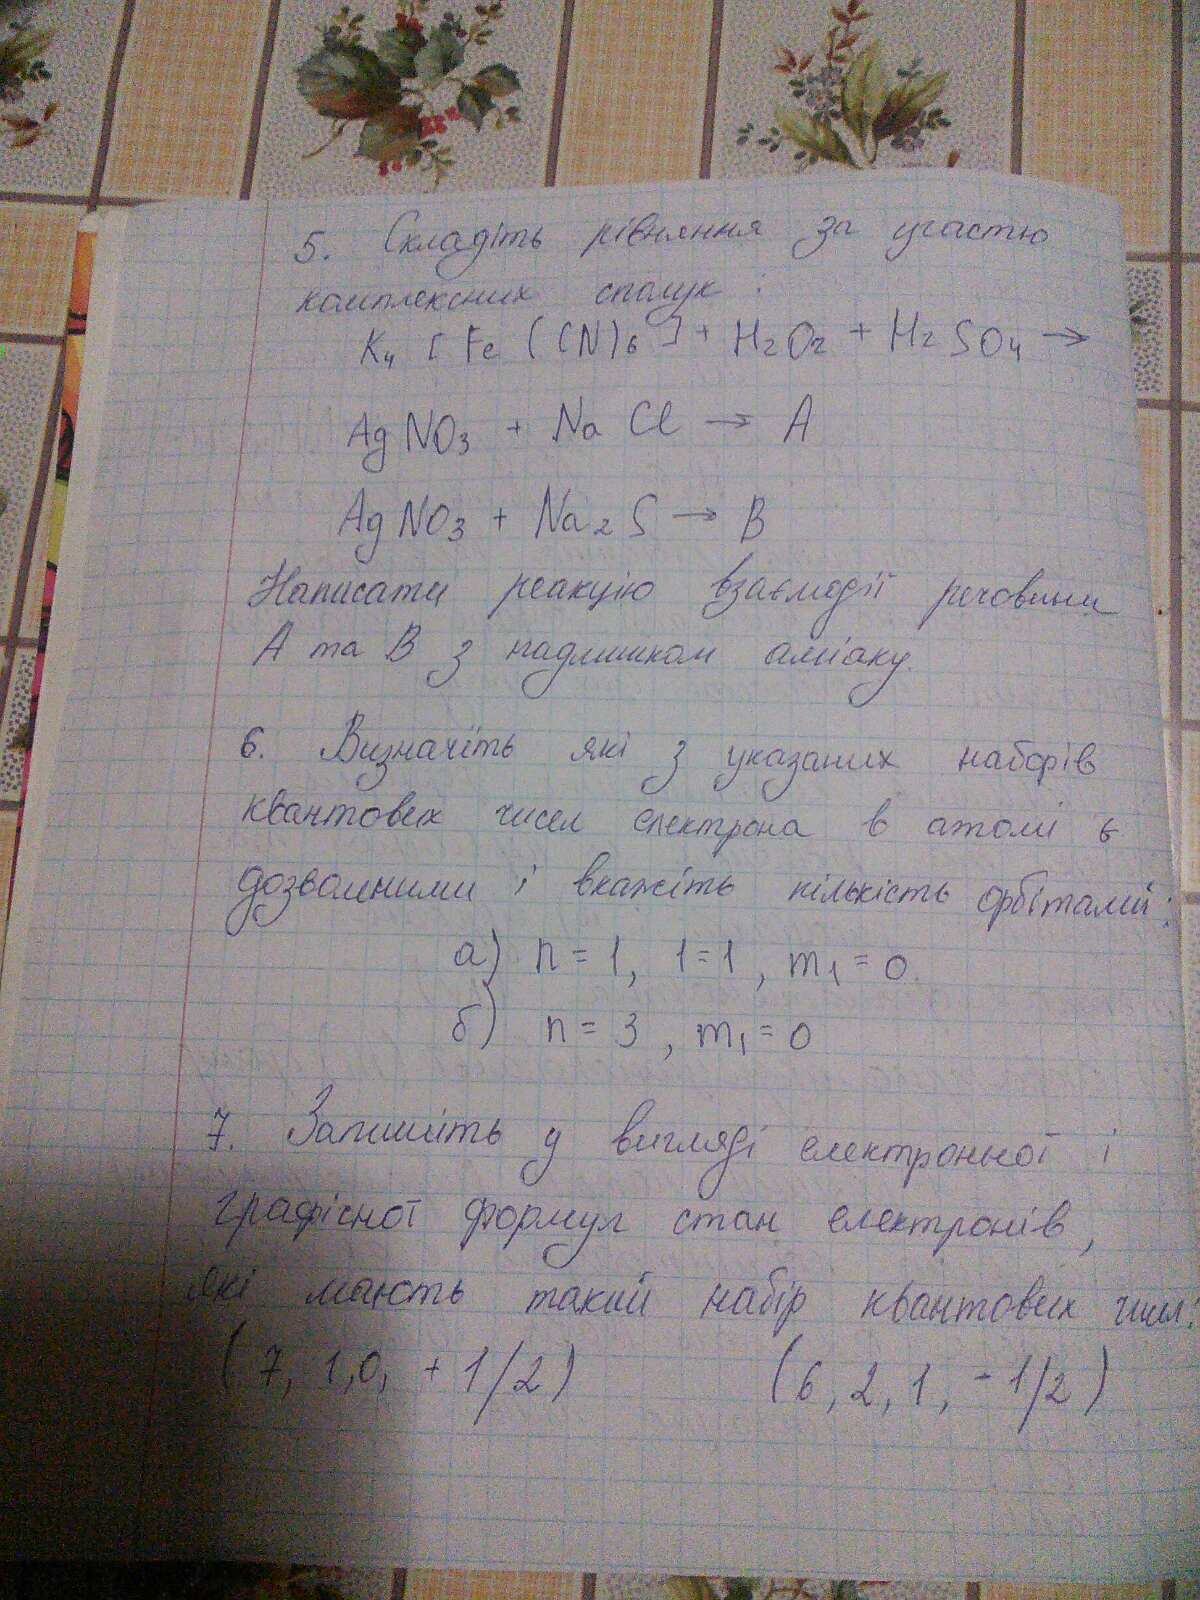 5. Складіть рівняння за участю
комплексних сполук :
K4 [ Fe (CN)6 ] + H2O2 + H2SO4 →
AgNO3 + NaCl → A
AgNO3 + Na2S → B
Написати реакцію взаємодії речовини
А та В з надлишком аміаку.
6. Визначіть які з указаних наборів
квантових чисел електрона в атомі є
дозволиними і вкажіть кількість орбіталий:
а) n = 1, 1=1, m1 = 0.
б) n = 3, m1 = 0
7. Запишіть у вигляді електронної і
графісної формул стан електронів,
які мають такий набір квантових чисел:
( 7, 1,0, + 1/2 ) ( 6, 2, 1, - 1/2 )